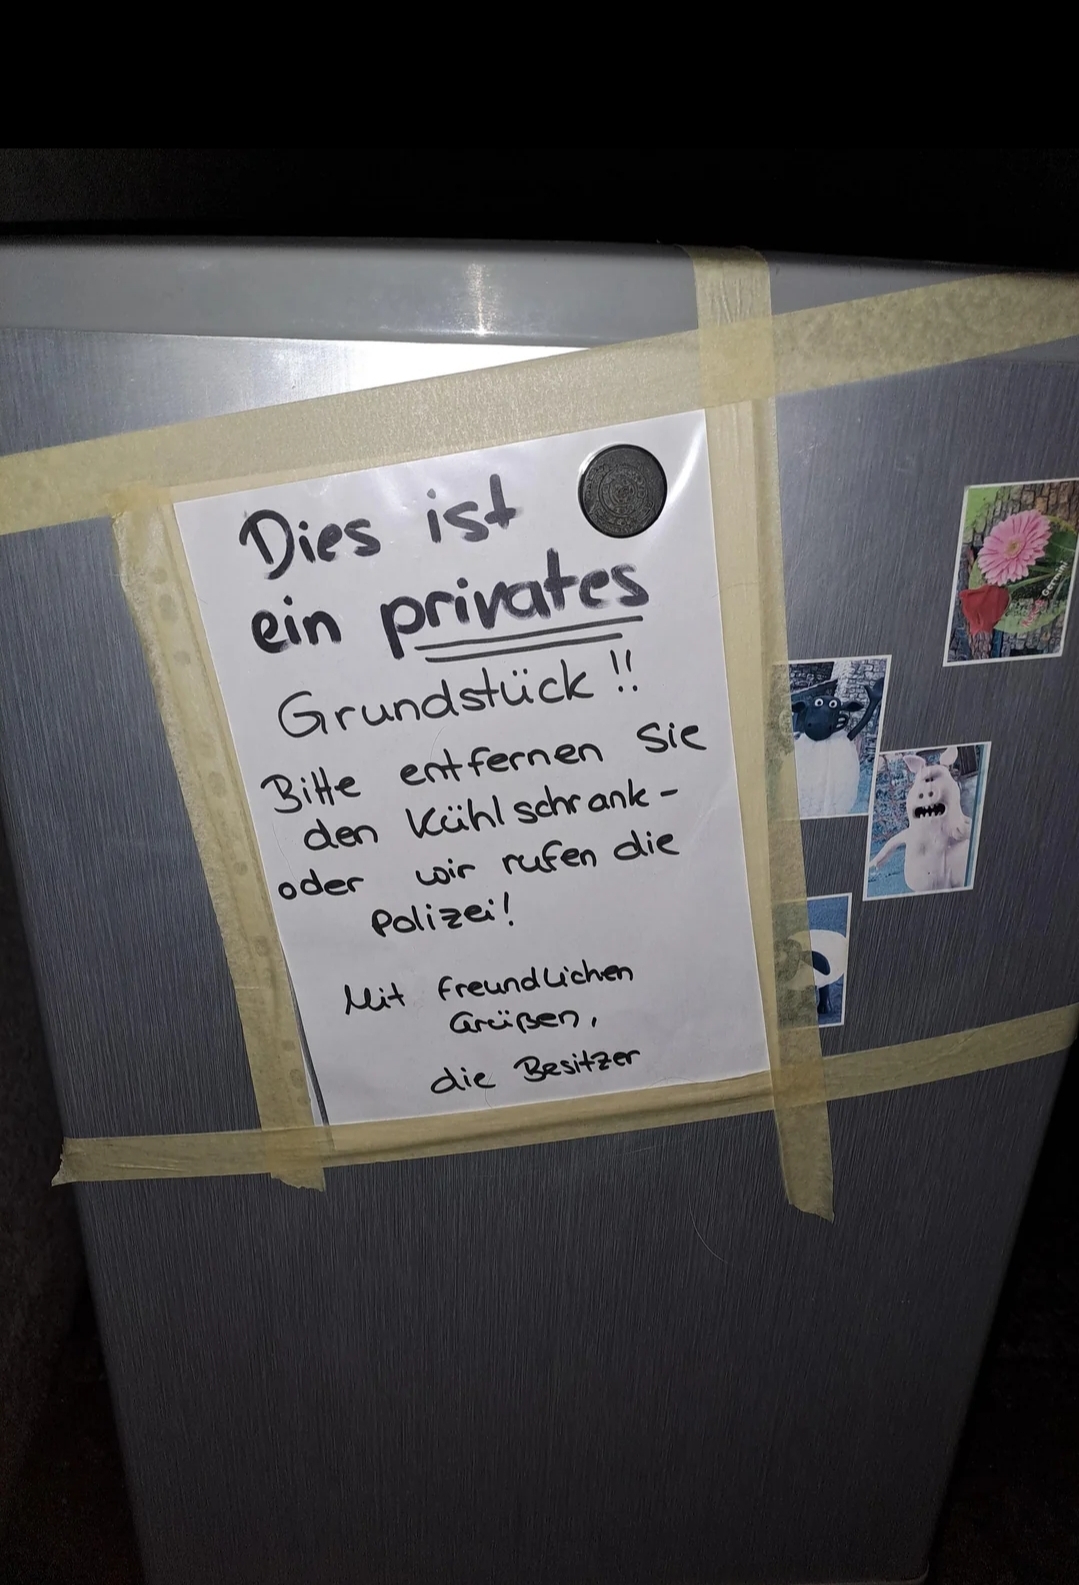 Dies ist
ein privates
Grundstück !!
Bitte entfernen Sie
den Kühlschrank -
oder wir rufen die
Polizei!
Mit freundlichen
Grüßen,
die Besitzer